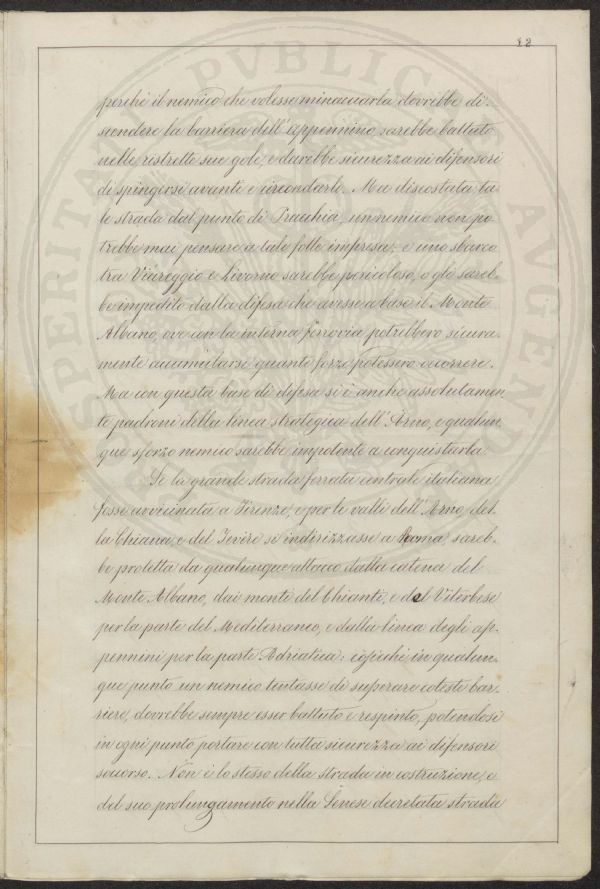 12
perchè il nemico che volesse minacciarla dovrebbe di
scendere la barriera dell'appennino, sarebbe battuto
nelle ristrette sue gole, e darebbe sicurezza ai difensori
di spingersi avanti e circondarlo. Ma discostata ta
le strada dal punto di Pracchia, un nemico non po
trebbe mai pensare a tale folle impresa; e uno sbarco
tra Viareggio e Livorno sarebbe pericoloso, o gle sareb-
be impedito dalla difesa che avesse a base il Monte
Albano, ove con la interna ferrovia potrebbero sicura-
mente accumularsi quante forze potessero occorrere.
Ma con questa base di difesa si è anche assolutamen
te padroni della linea strategica dell'Arno, e qualun,
que sforzo nemico sarebbe impotente a conquistarla.
Se la grande strada ferrata centrale italiana
fosse avvicinata a Firenze, e per le valli dell'Arno, del-
la Chiana, e del Tevere si indirizzasse a Roma, sareb-
be protetta da qualunque attacco dalla catena del
Monte Albano, dai monti del Chianti, e del Viterbese
per la parte del Mediterraneo, e dalla linea degli ap-
pennini per la parte Adriatica: cosicchè in qualun-
que punto un nemico tentasse di superare coteste bar-
riere, dovrebbe sempre esser battuto e respinto, potendosi
in ogni punto portare con tutta sicurezza ai difensori
soccorso. Non è lo stesso della strada in costruzione, e
del suo prolungamento nella Senese decretata strada
PROSPERITATI PVBLICAE AVGENDAE